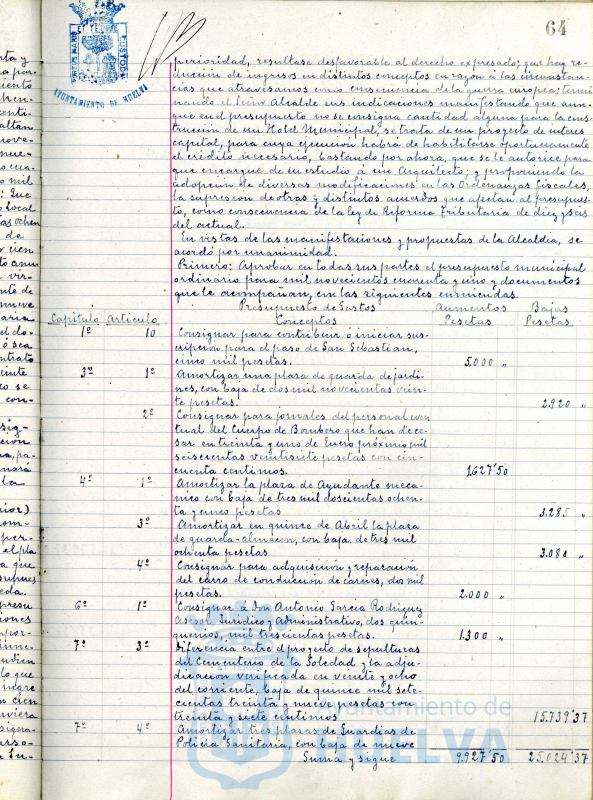 64
AYUNTAMIENTO DE HUELVA
perioridad, resultase desfavorable al derecho expresado; que hay re-
ducción de ingresos en distintos conceptos en razón á las circunstan-
cias que atravesamos como consecuencia de la guerra europea; termi-
nando el Señor Alcalde sus indicaciones manifestando que aun-
que en el presupuesto no se consigna cantidad alguna para la cons-
trucción de un Hotel Municipal, se trata de un proyecto de interes
capital, para cuya ejecución habrá de habilitarse oportunamente
el crédito necesario, bastando por ahora, que se le autorice para
que encargue de su estudio á un Arquitecto; y proponiendo la
adopcion de diversas modificaciones en las Ordenanzas fiscales,
la supresion de otras y distintos acuerdos que afectan al presupues-
to, como consecuencia de la ley de Reforma Tributaria de diez y seis
del actual.
En vistas de las manifestaciones y propuestas de la Alcaldia, se
acordó por unanimidad:
Primero: Aprobar en todas sus partes el presupuesto municipal
ordinario para mil novecientos cuarenta y uno y documentos
que le acompañan, con las siguientes enmiendas.
Presupuesto de Gastos Aumentos Bajas
Capitulo Articulo Conceptos Pesetas Pesetas
1º 10 Consignar para contribuir ó iniciar sus-
cripcion para el paso de San Sebastian,
cinco mil pesetas. 5.000 "
3º 1º Amortizar una plaza de guarda de jardi-
nes, con baja de dos mil novecientas vein-
te pesetas. 2.920 "
2º Consignar para jornales del personal even
tual del Cuerpo de Bombero que han de ce-
sar en treinta y uno de Enero próximo mil
seiscientas veintisiete pesetas con cin-
cuenta centimos. 1.627'50
4º 1º Amortizar la plaza de Ayudante meca-
nico con baja de tres mil doscientas ochen-
ta y cinco pesetas 3.285 "
3º Amortizar en quince de Abril la plaza
de guarda-almacen, con baja de tres mil
ochenta pesetas 3.080 "
4º Consignar para adquisición y reparación
del carro de conduccion de carnes, dos mil
pesetas. 2.000 "
6º 1º Consignar á don Antonio Garcia Rodriguez
Asesor Juridico y Administrativo, dos quin-
quenios, mil trescientas pesetas. 1.300 "
7º 3º Diferencia entre el proyecto de sepulturas
del Cementerio de la Soledad y la adju-
dicación verificada en veinte y ocho
del corriente, baja de quince mil sete-
cientas treinta y nueve pesetas con
treinta y siete centimos 15.739'37
7º 4º Amortizar tres plazas de Guardias de
Policia Sanitaria, con baja de nueve
Suma y sigue 9.927'50 25.024'37
Ayuntamiento de
HUELVA